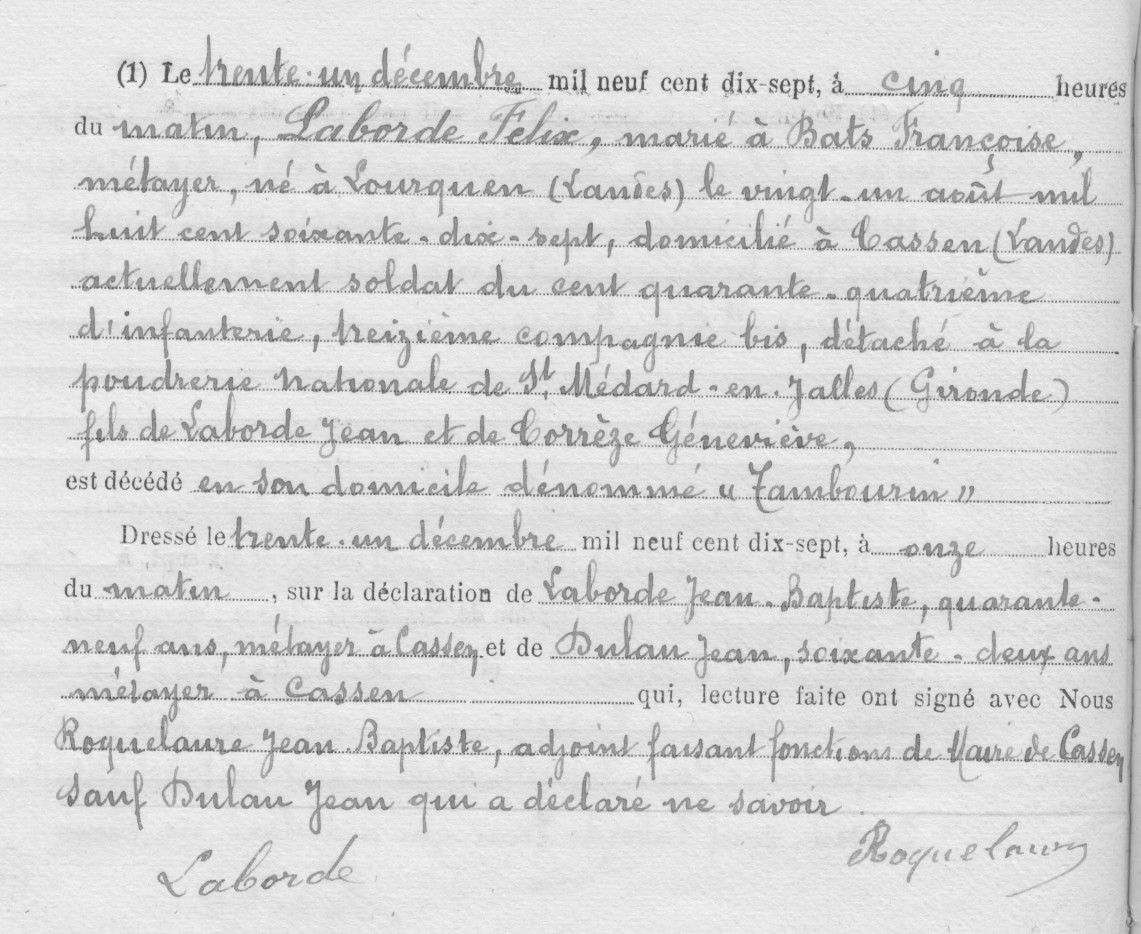 (1) Le trente-un décembre mil neuf cent dix-sept, à cinq heures
du matin, Laborde Félix, marié à Bats Françoise,
métayer, né à Lourquen (Landes) le vingt-un août mil
huit cent soixante-dix-sept, domicilié à Cassen (Landes)
actuellement soldat du cent quarante-quatrième
d'infanterie, treizième compagnie bis, détaché à la
poudrerie Nationale de St Médard-en-Jalles (Gironde)
fils de Laborde Jean et de Corrèze Géneviève,
est décédé en son domicile dénommé « Tambourin »
Dressé le trente-un décembre mil neuf cent dix-sept, à onze heures
du matin, sur la déclaration de Laborde Jean-Baptiste, quarante-
neuf ans, métayer à Cassen, et de Dulau Jean, soixante-deux ans
métayer à Cassen qui, lecture faite ont signé avec Nous
Roquelaure Jean-Baptiste, adjoint faisant fonctions de Maire de Cassen
sauf Dulau Jean qui a déclaré ne savoir.
Laborde Roquelaure